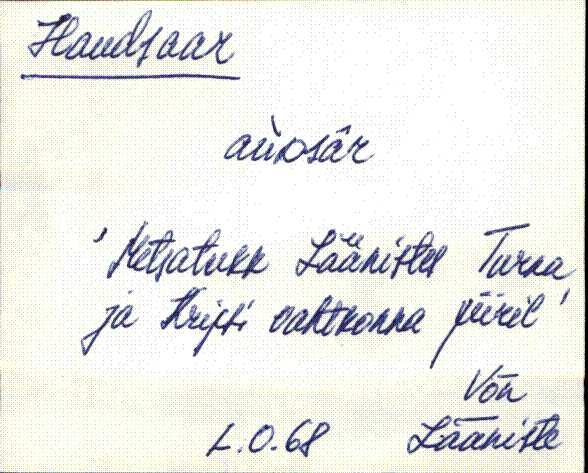 Haudsaar
àuᴅsâr
'Metsatukk Läänistes Turna
ja Kripsi vahtkonna piiril'
Võn
L.O.68 Lääniste